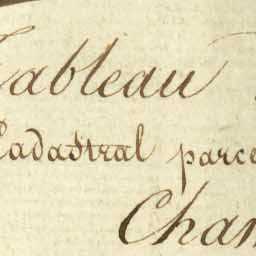 Tableau
Cadastral parce
Chan